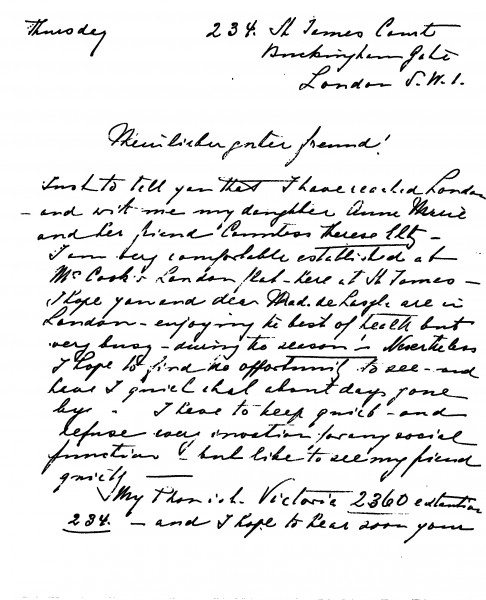 Thursday 234. St James Court
Buckingham Gate
London S.W.1.
Mein lieber guter freund!
Just to tell you that I have reached London
- and wit me my daughter Anne Marie
and her friend Countess Therese
I am very comfortable established at
Mc Cook's London flat - here at St James -
I hope you and dear Mad. de are in
London - enjoying the best of health but
very busy - during the season - Nevertheless
I hope to find the opportunity to see - and
have I quiet chat about days gone
bye - I have to keep quiet - and
refuse every invation for any social
function! but like to see my friend
quietly
My Phon ich. Victoria 2360 extantion
234. - and I hope to hear soon your